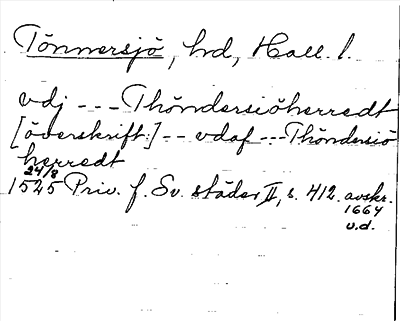 Tönnersjö, hd, Hall. l.
vdj --- Thöndersiöherredt
[överskrift:] -- vdaf --- Thöndersiö
herredt
24/8
1525 Priv. f. Sv. städer II, s. 412. avskr.
1664
u.d.